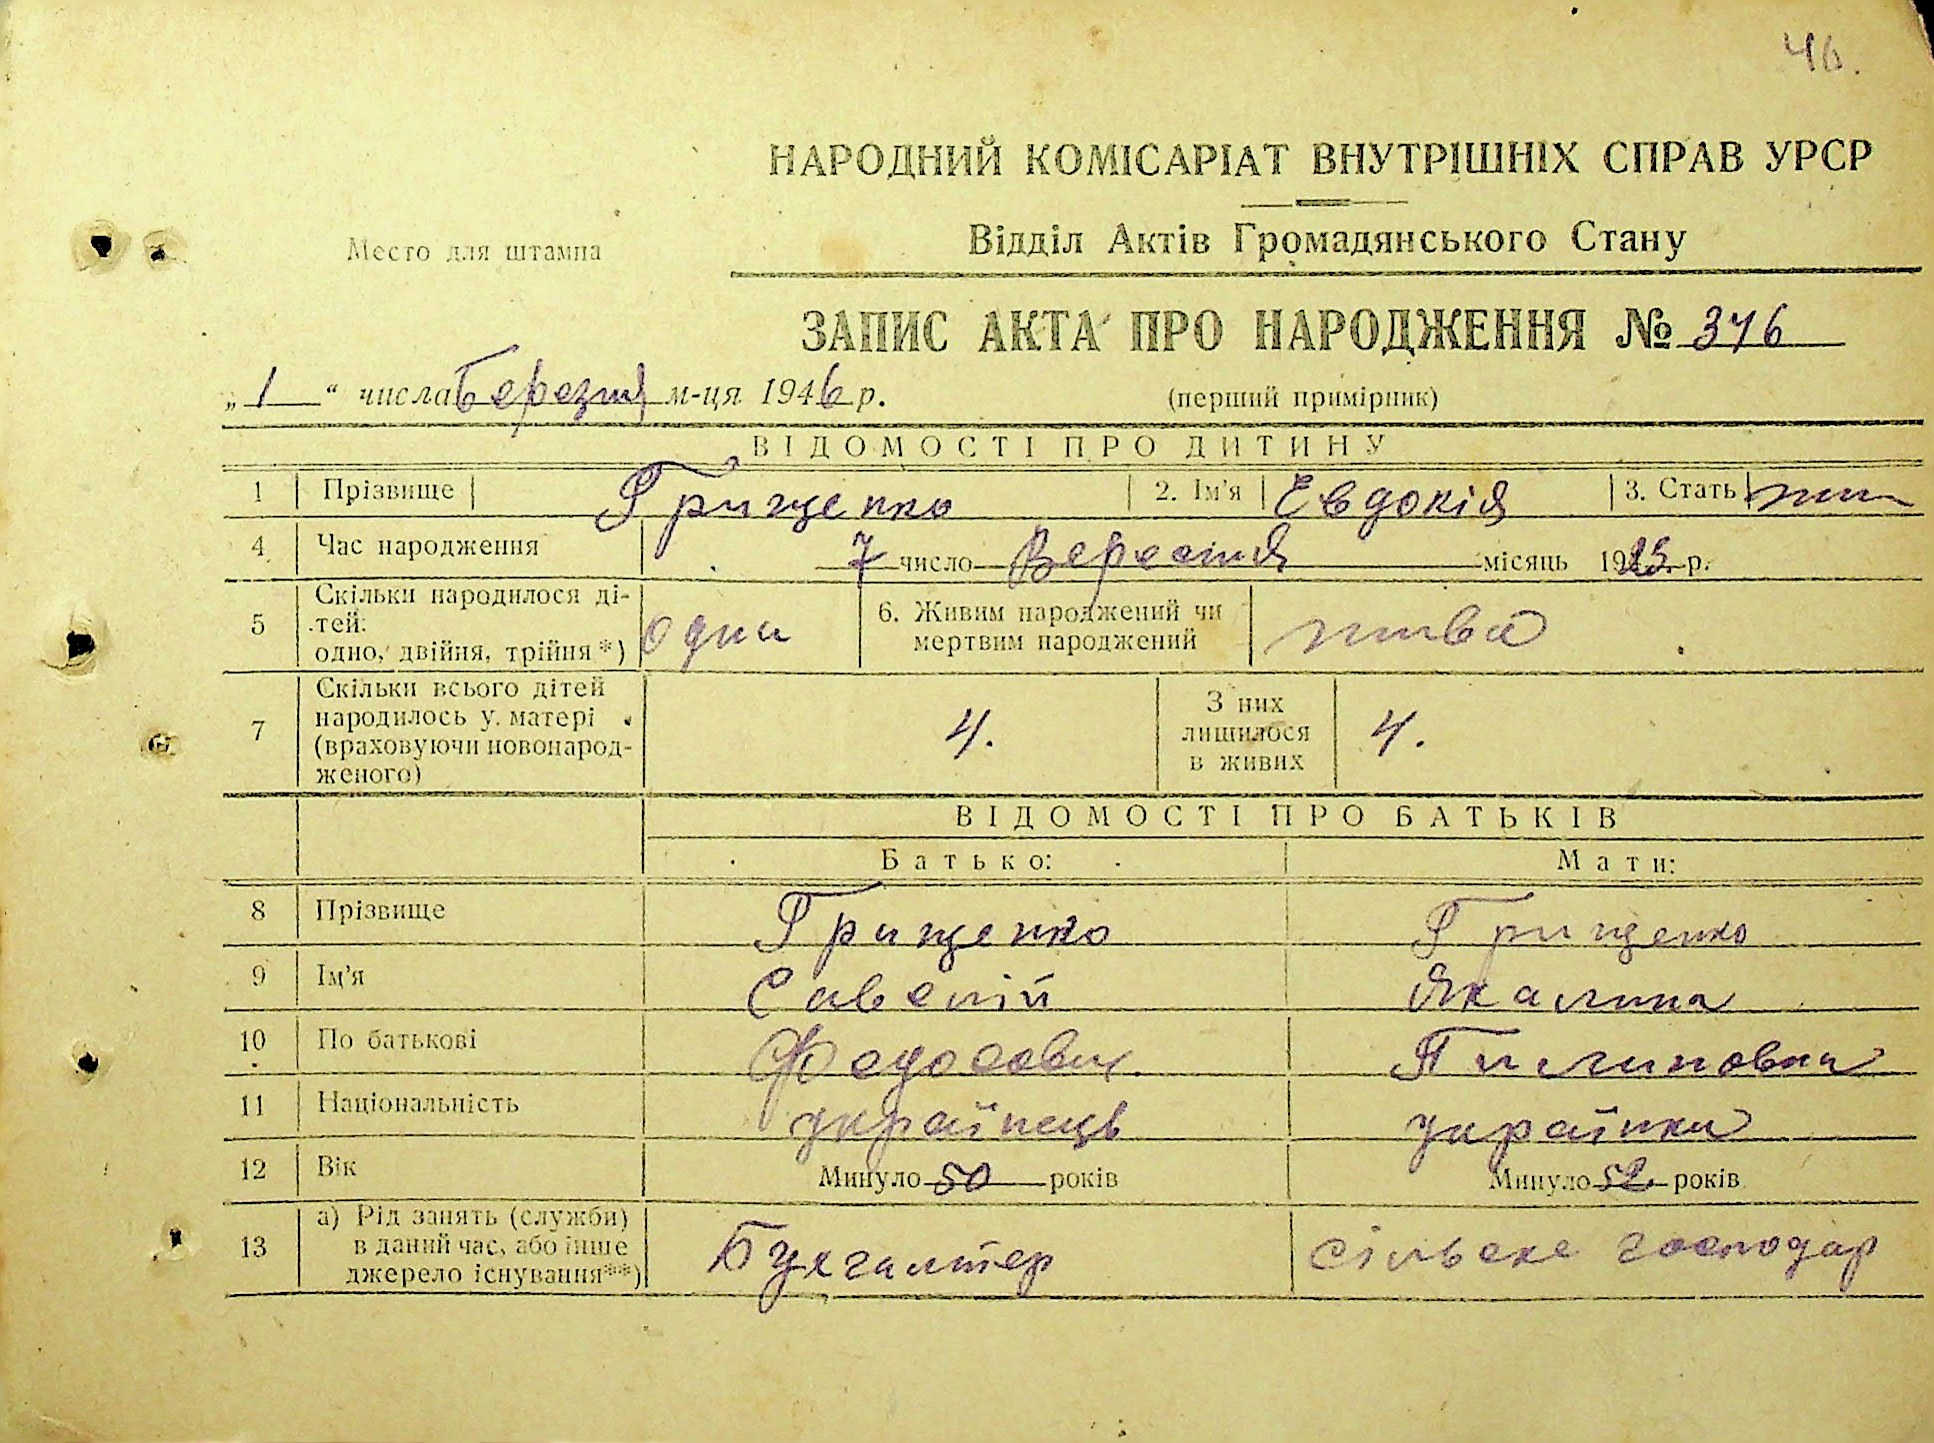 46.
НАРОДНИЙ КОМІСАРІАТ ВНУТРІШНІХ СПРАВ УРСР
Место для штампа
Відділ Актів Громадянського Стану
ЗАПИС АКТА ПРО НАРОДЖЕННЯ № 376
„ 1 “ числа Березня м-ця 1946 р.
(перший примірник)
ВІДОМОСТІ ПРО ДИТИНУ
1 Прізвище Грищенко 2. Ім'я Евдокія 3. Стать жін
4 Час народження 7 число Вересня місяць 1923 р.
5 Скільки народилося ді-
тей:
одно, двійня, трійня*) одна 6. Живим народжений чи
мертвим народжений жива
7 Скільки всього дітей
народилось у матері
(враховуючи новонарод-
женого) 4. З них
лишилося
в живих 4.
ВІДОМОСТІ ПРО БАТЬКІВ
Батько: Мати:
8 Прізвище Грищенко Грищенко
9 Ім'я Савелій Якалина
10 По батькові Федосович Пилиповна
11 Національність українець українка
12 Вік Минуло 50 років Минуло 52 років
13 а) Рід занять (служби)
в даний час, або інше
джерело існування**) Бухгалтер сільске господар